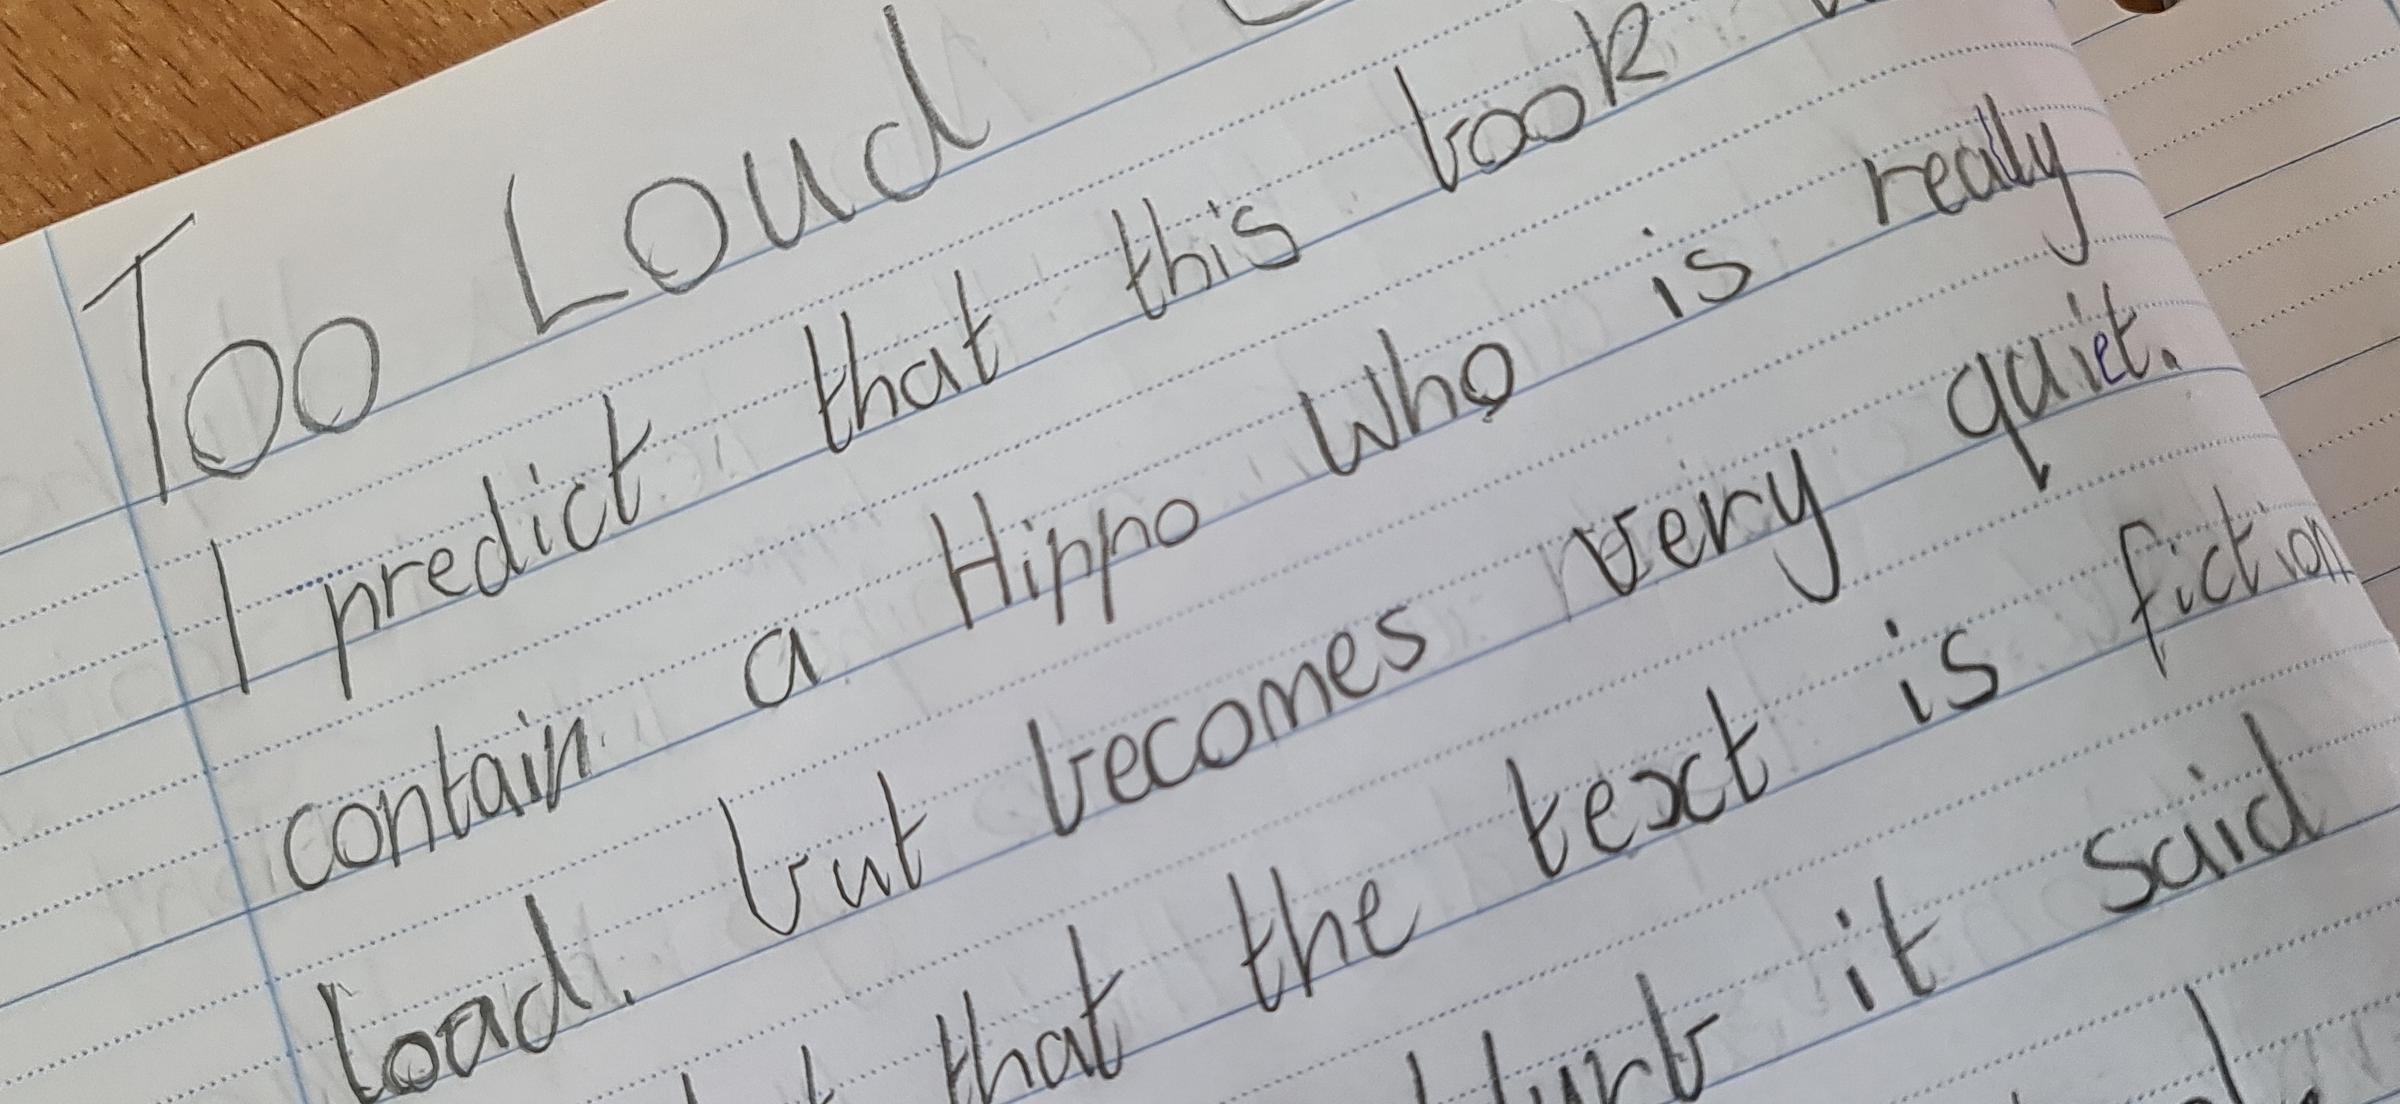 Too Loud
I predict that this book
contain a Hippo who is really
load. but becomes very quiet.
that the text is fiction
blurb it said